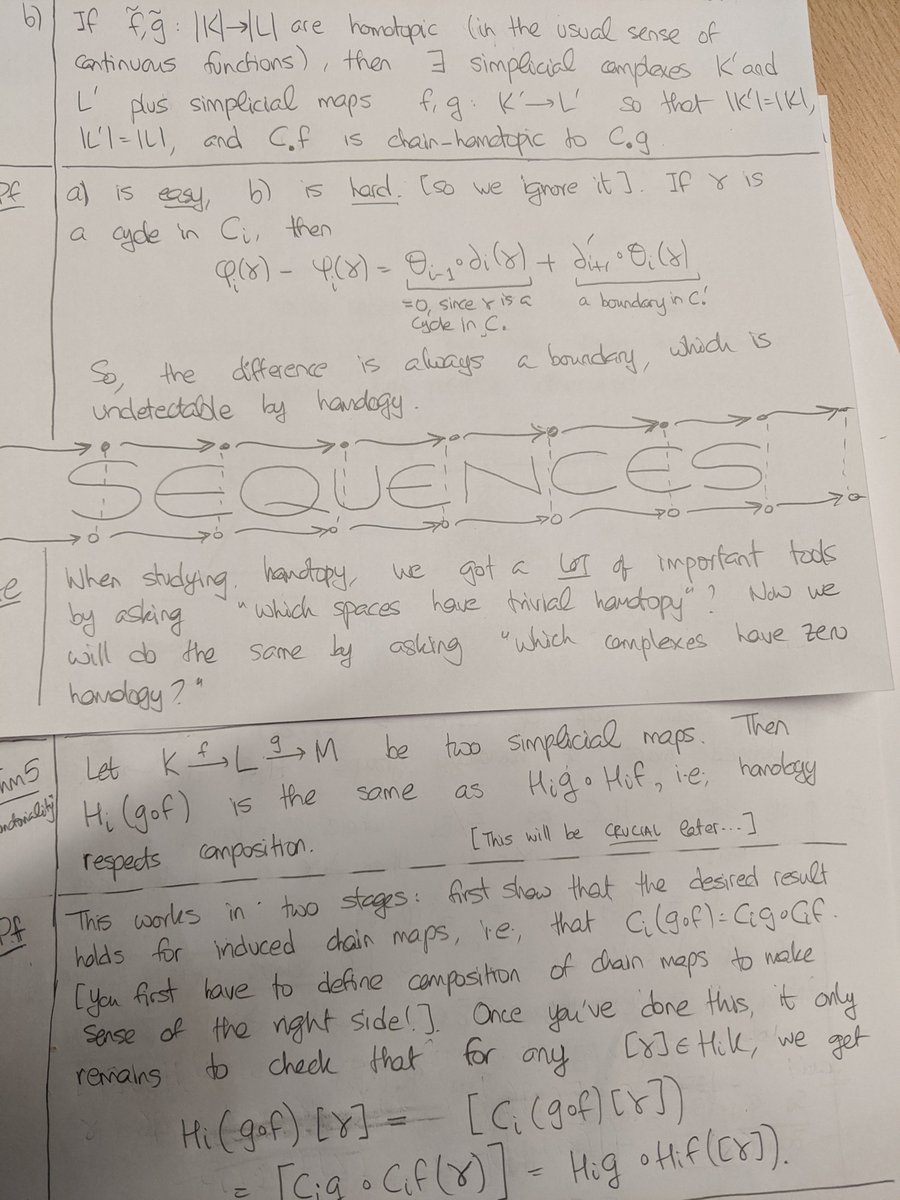 b) If f̃, g̃ : |K|→|L| are homotopic (in the usual sense of
continuous functions), then ∃ simplicial complexes K' and
L' plus simplicial maps f, g : K'→L' so that |K'|=|K|,
|L'|=|L|, and C.f is chain-homotopic to C.g
Pf a) is easy, b) is hard. [so we ignore it]. If γ is
a cycle in Ci, then
φi(γ) - ψi(γ) = θi-1∘∂i(γ) + ∂'i+1∘θi(γ)
=0, since γ is a a boundary in C.'
cycle in C.
So, the difference is always a boundary, which is
undetectable by homology.
SEQUENCES
When studying homotopy, we got a LOT of important tools
by asking "which spaces have trivial homotopy"? Now we
will do the same by asking "which complexes have zero
homology?"
Let K f→ L g→ M be two simplicial maps. Then
Hi(g∘f) is the same as Hig∘Hif, i.e; homology
respects composition. [This will be CRUCIAL later...]
Pf This works in two stages: first show that the desired result
holds for induced chain maps, i.e, that Ci(g∘f)=Cig∘Cif.
[you first have to define composition of chain maps to make
sense of the right side!]. Once you've done this, it only
remains to check that for any [γ]∈HiK, we get
Hi(g∘f)[γ] = [Ci(g∘f)[γ])
= [Cig∘Cif(γ)] = Hig∘Hif([γ]).